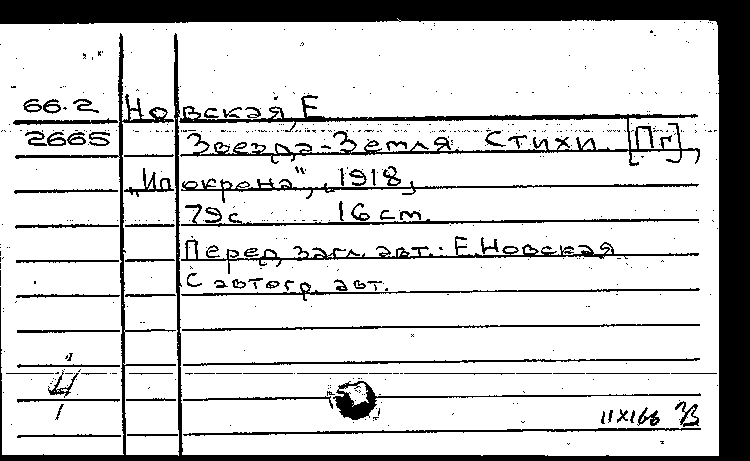 66.2 Новская, Е
2665 Звезда-Земля. Стихи. [Пг],
„Ипокрена", 1918,
79с 16 см.
Перед загл. авт.: Е. Новская
С автогр. авт.
4
11 X 166